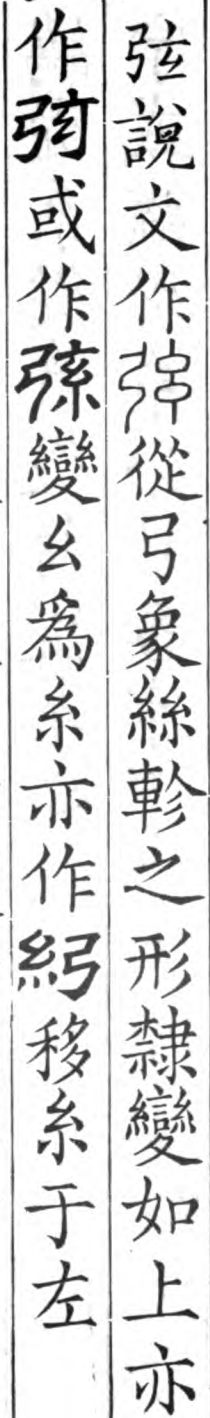 弦說文作𢐆從弓象絲軫之形隸變如上亦
作𢎺或作弥變幺爲糸亦作𥿎移糸于左